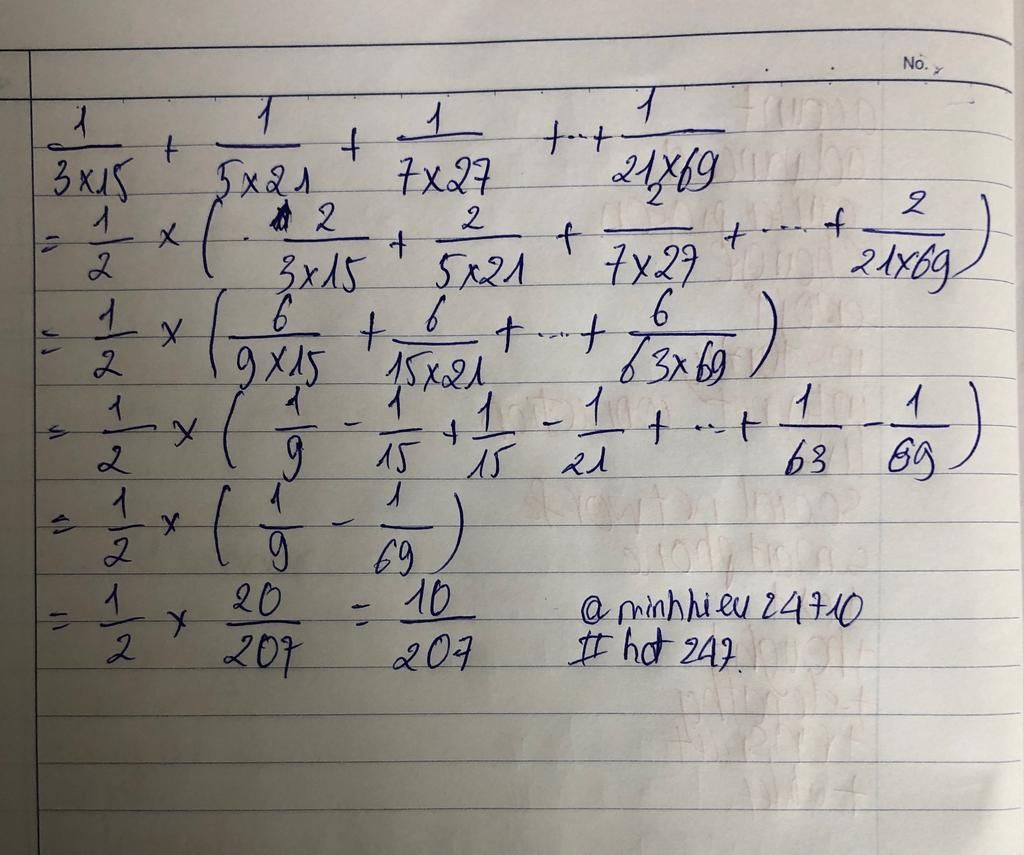 No.
1/(3×15) + 1/(5×21) + 1/(7×27) + ... + 1/(21×69)
= 1/2 × ( 2/(3×15) + 2/(5×21) + 2/(7×27) + .... + 2/(21×69) )
= 1/2 × ( 6/(9×15) + 6/(15×21) + ... + 6/(63×69) )
= 1/2 × ( 1/9 - 1/15 + 1/15 - 1/21 + ... + 1/63 - 1/69 )
= 1/2 × ( 1/9 - 1/69 )
= 1/2 × 20/207 = 10/207 @minhhieu24710
# hd 247.